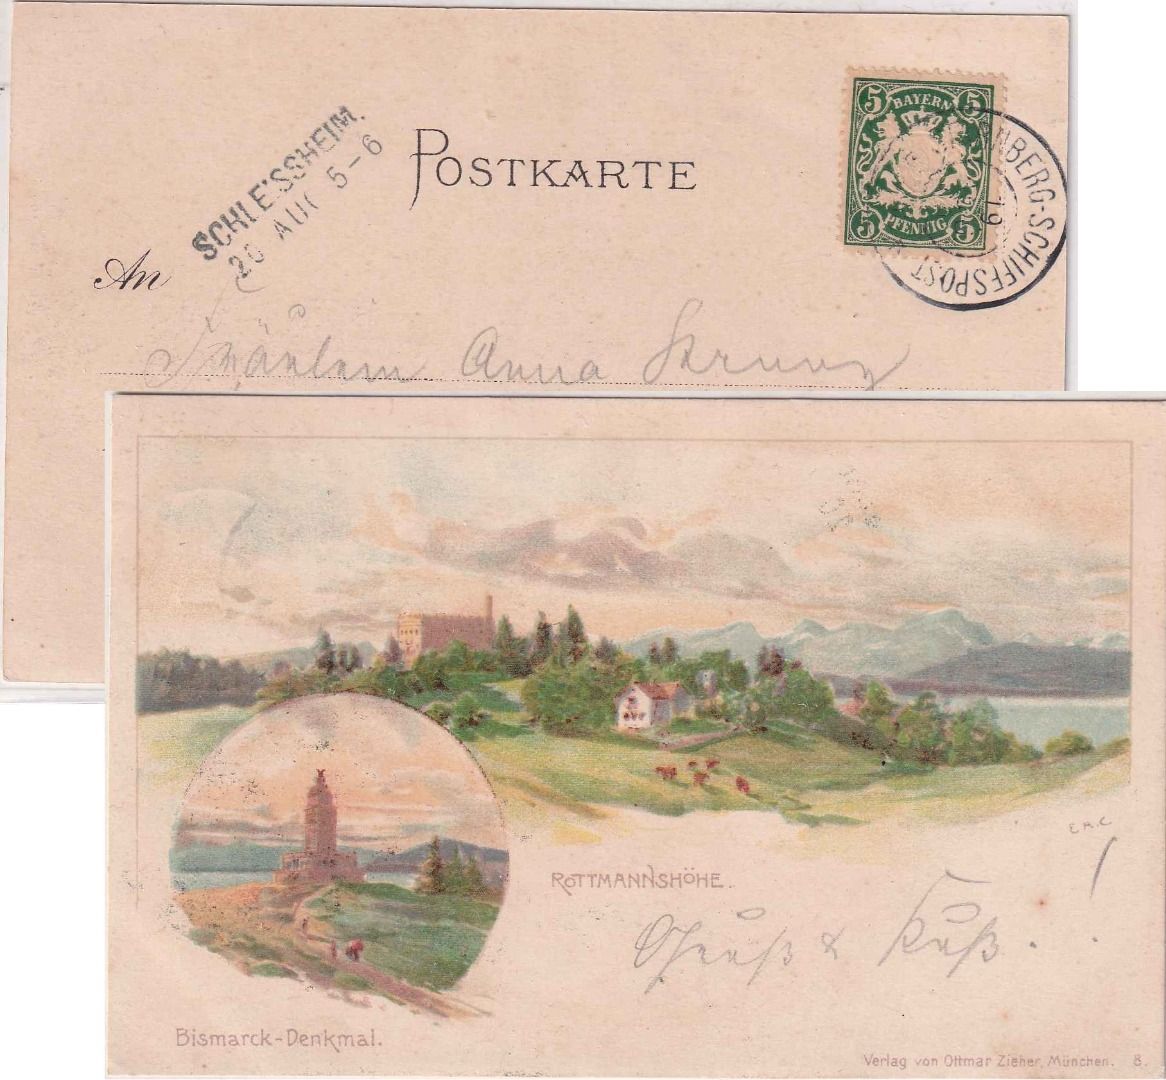 SCHLEISSHEIM.
20 AUG 5-6
POSTKARTE
5 BAYERN 5
5 PFENNIG 5
NBERG-SCHIFFSPOST
19
An
Fräulein Anna
ROTTMANNSHÖHE.
Gruß & Kuß.
Bismarck-Denkmal.
Verlag von Ottmar Zieher, München. 8.